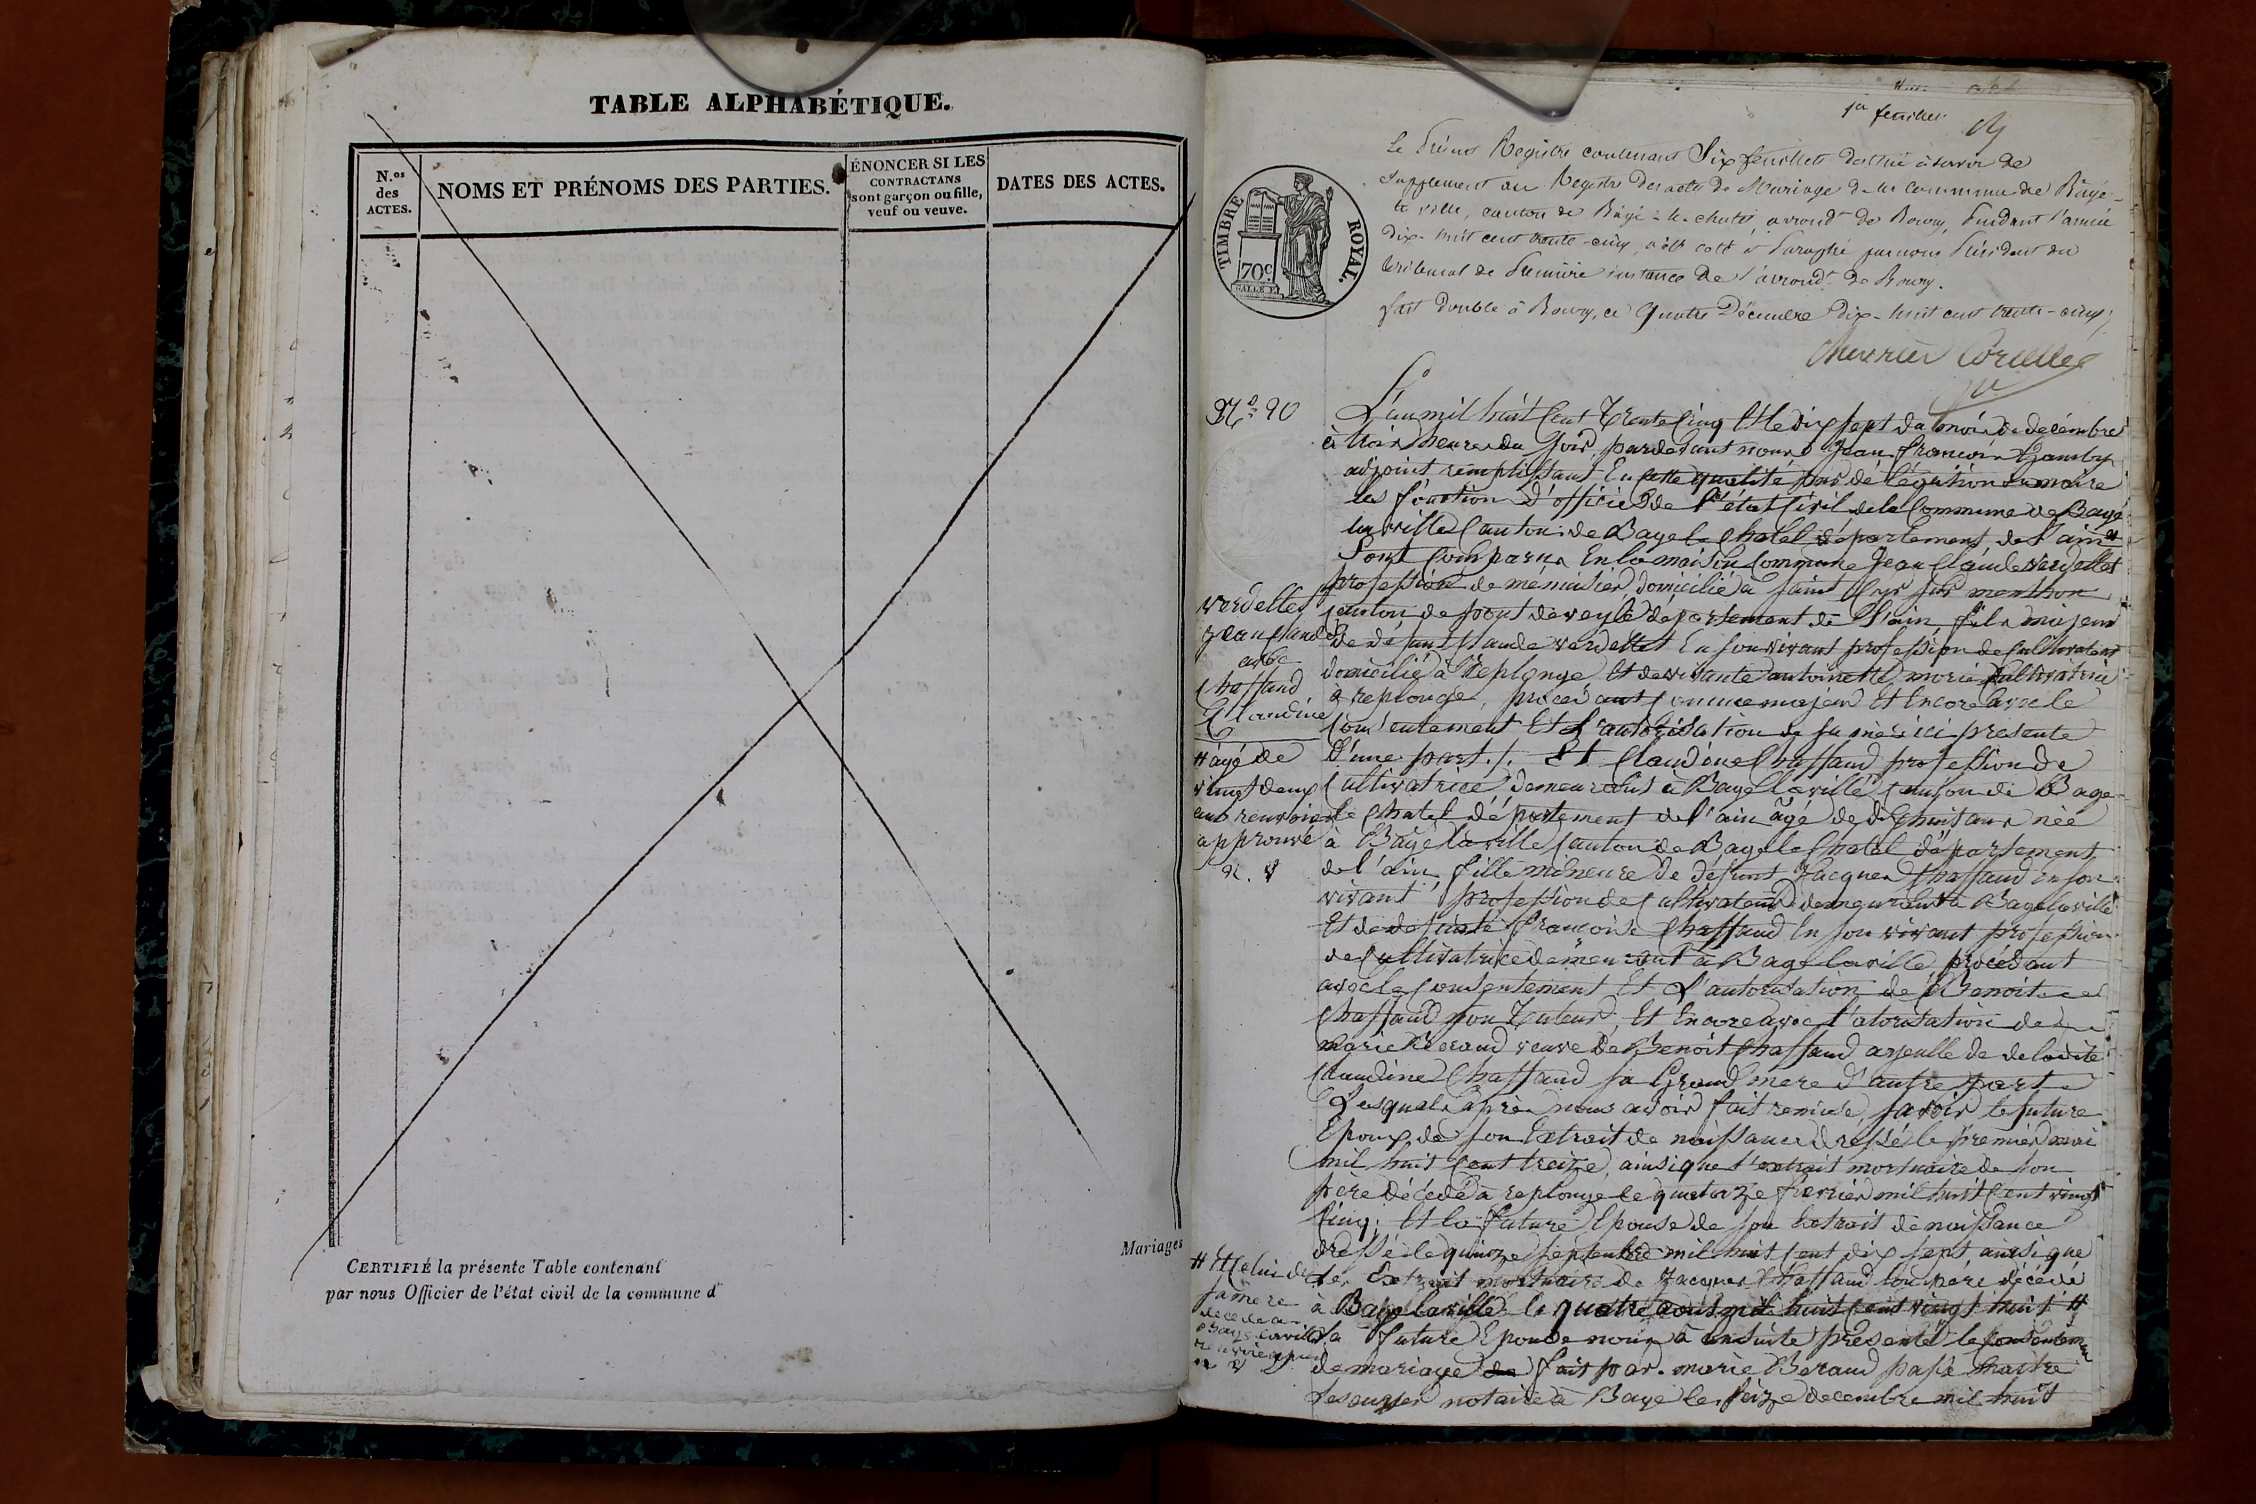 TABLE ALPHABÉTIQUE.
N.os des ACTES.
NOMS ET PRÉNOMS DES PARTIES.
ÉNONCER SI LES
CONTRACTANS
sont garçon ou fille,
veuf ou veuve.
DATES DES ACTES.
Mariages
CERTIFIÉ la présente Table contenant
par nous Officier de l'état civil de la commune d
1er feuillet
TIMBRE ROYAL.
70c
Le Présent Registre contenant Six feuillets destiné à servir de
Supplément au Registre des actes de Mariage de la commune de Bâgé-
la ville, canton de Bâgé-le-chatel, arrondt de Bourg, Pendant l'année
Dix-huit cent trente-cinq, a été coté et Paraphé par nous Président du
tribunal de Première instance de l'arrondt de Bourg.
fait Double à Bourg, ce Quatre Décembre Dix-huit cent trente-cinq,
No 20
L'an mil huit Cent Trente Cinq Et le dix sept du mois de decémbre
à trois heures du Soir, pardevant nous Jean françois
adjoint remplissant En cette qualité par délégation du maire
les fonction d'officier de l'état Civil de la Commune de Bagé
la ville Canton de Bage le Chatel département de l'ain
Sont Comparus En la maison Commune Jean Claude verdellet
profession de menuisier domicilié à saint Cyr sur menthon
Canton de pont de veyle département de l'ain, fils majeur
de défunt Claude verdellet En son vivant profession de Cultivateur
domicilié à Replonge Et de vivante antoinette morié Cultivatrice
à replonge, procédant Comme majeur Et Encore avec le
Consentement Et l'autorisation de sa mère ici presente
D'une part /. Et Claudine Chaffaud profession de
Cultivatrice demeurant à Bage la ville Canton de Bage
le Chatel département de l'ain âgé de dix huit ans née
à Bagé la ville Canton de Bage le Chatel département
de l'ain, fille mineure de défunt Jacques Chaffaud En son
vivant profession de Cultivateur demeurant à Bage la ville
Et de defunte françoise Chaffaud En son vivant profession
de Cultivatrice demeurant à Bage la ville, procédant
avec le Consentement Et L'autorisation de Benoit
Chaffaud son Tuteur, Et Encore avec l'atorisation de
marie Beraud veuve de Benoit Chaffaud ayeulle de de ladite
Claudine Chaffaud sa Grand mere d'autre part
Lesquels après nous avoir fait remise, savoir le future
Epoux de son Extrait de naissance dréssé le premier mai
mil huit Cent treize, ainsi que l'extrait mortuaire de son
pere décédé à replonge le quatorze fevrier mil huit Cent vingt
Cinq; Et la future Epouse de son Extrait de naissance
dréssé le quinze septembre mil huit Cent dix sept ainsi que
les Extrait mortuaire de Jacques Chaffaud son père décédé
à Bage la ville le quatre aout mil huit Cent vingt huit #
La future Epouse nous à ensuite présenté le consentement
de mariage de fait par marie Beraud passé maitre
notaire à Bage le seize decembre mil huit
verdellet
jean Claude
avec
Chaffaud
Claudine
# agé de
vingt deux
ans renvoi
approuvé
# Et Celui de
sa mere
décédé a
Bage la ville